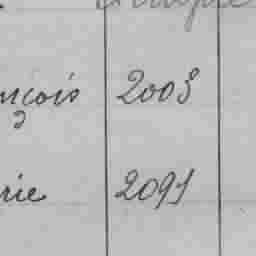 nçois 2003
rie 2091